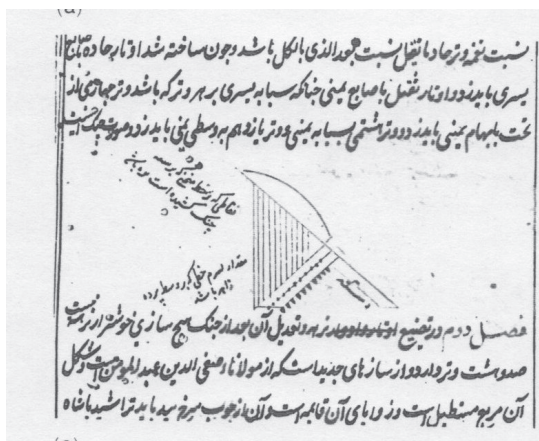 نسبت نغمه وتر حاد با ثقیل نسبت بعد الذی بالکل باشد و چون ساخته شد اوتار حاده باصابع
یسری باید زد و اوتار ثقیل باصابع یمنی چنانکه سبابه یسری بر هر وتر که باشد وتر چهارمی از
تحت بابهام یمنی باید زد و وتر هشتمی بسبابه یمنی و وتر یازدهم به وسطی یمنی باید زد و صورت چنگ اینست
نقاطی که
چنگ است
فصل دوم در تصنیع نزهه و تعدیل آن بعد از چنگ هیچ سازی خوشتر از نزهه نیست
صد و هشت وتر دارد و از سازهای جدید است که از مولانا صفی الدین عبد المومن است و شکل
آن مربع مستطیل است و زوایای آن قائمه است و آن از چوب سرخ بید باید تراشید